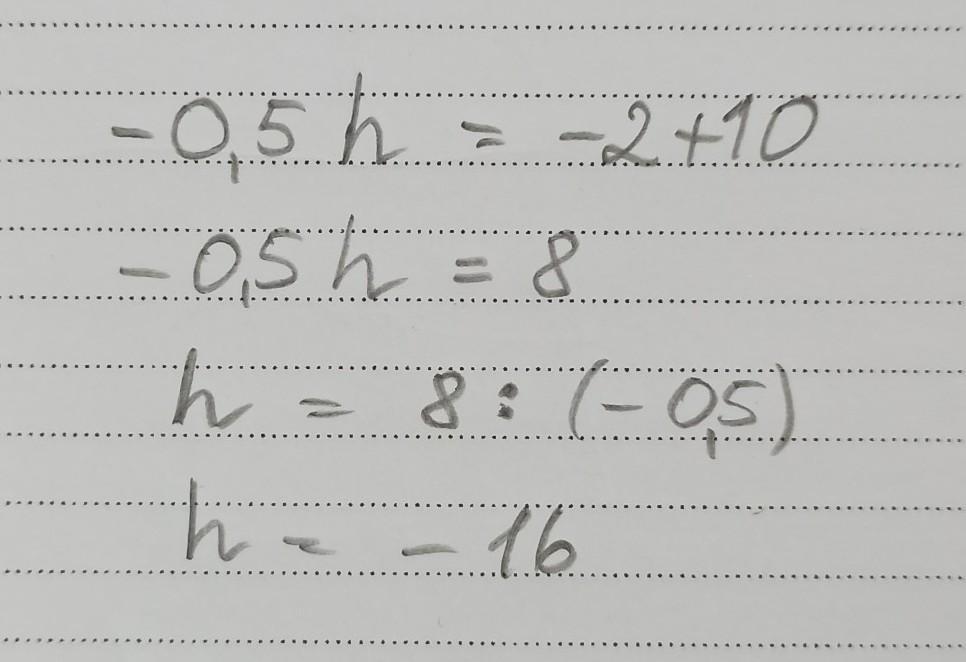 -0,5 h = -2+10
-0,5 h = 8
h = 8 : (-0,5)
h = -16